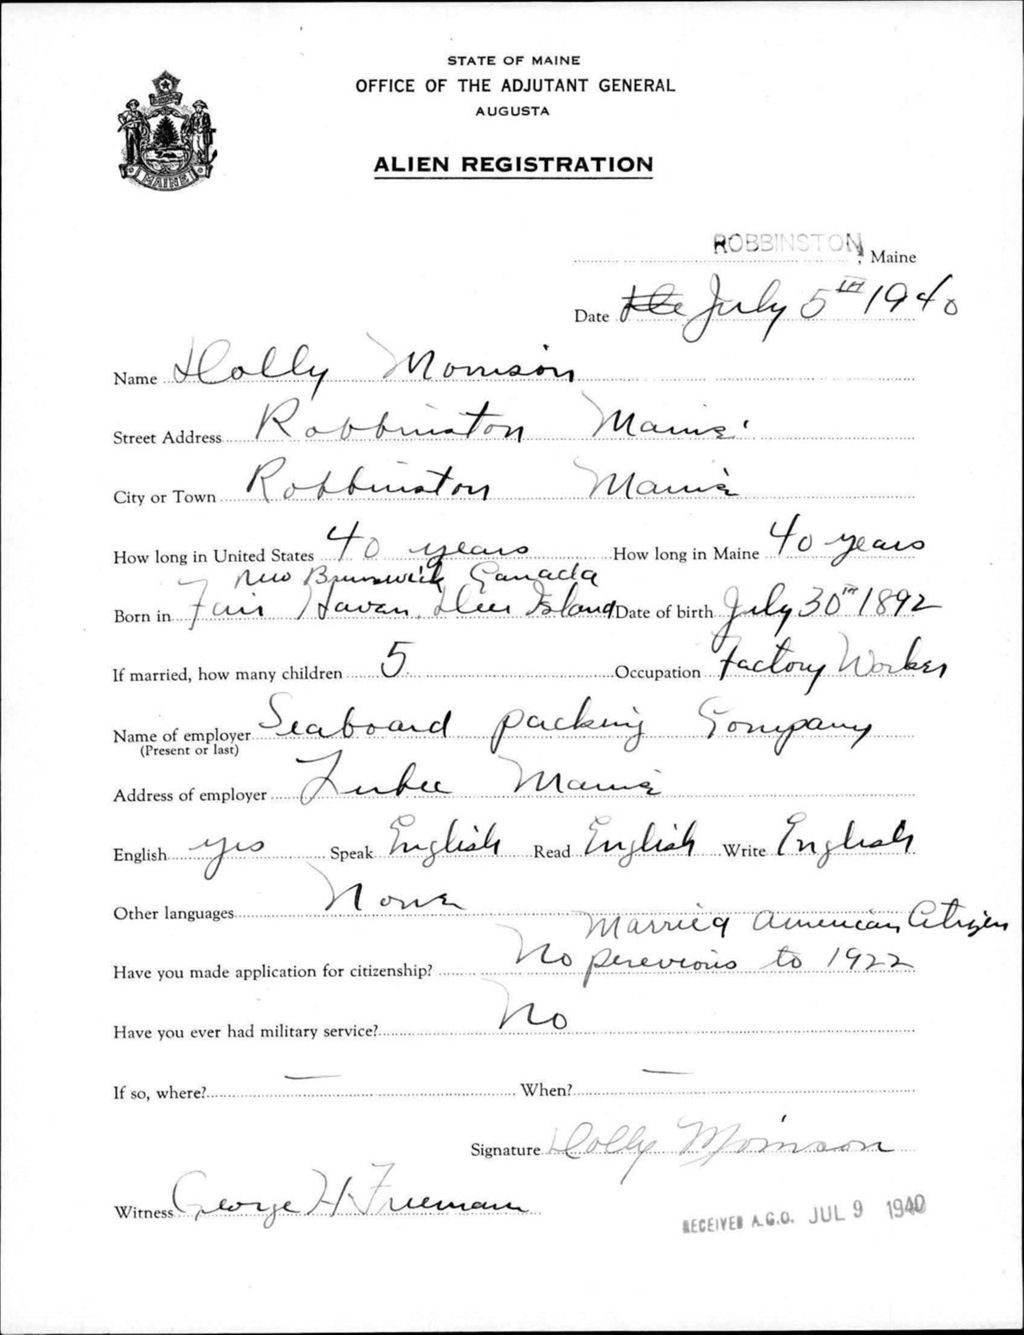 STATE OF MAINE
OFFICE OF THE ADJUTANT GENERAL
AUGUSTA
ALIEN REGISTRATION
MAINE
ROBBINSTON, Maine
Date the July 5th 1940
Name Holly Morrison
Street Address Robbinston Maine
City or Town Robbinston Maine
How long in United States 40 years How long in Maine 40 years
New Brunswick Canada
Born in Fair Havan, Deer Island Date of birth July 30th 1892
If married, how many children 5 Occupation Factory Worker
Name of employer Seaboard packing Company
(Present or last)
Address of employer Lubec Maine
English yes Speak English Read English Write English
Other languages None
Married American Citizen
Have you made application for citizenship? No perevious to 1922
Have you ever had military service? No
If so, where? — When? —
Signature Holly Morrison
Witness George H Freeman
RECEIVED A.G.O. JUL 9 1940